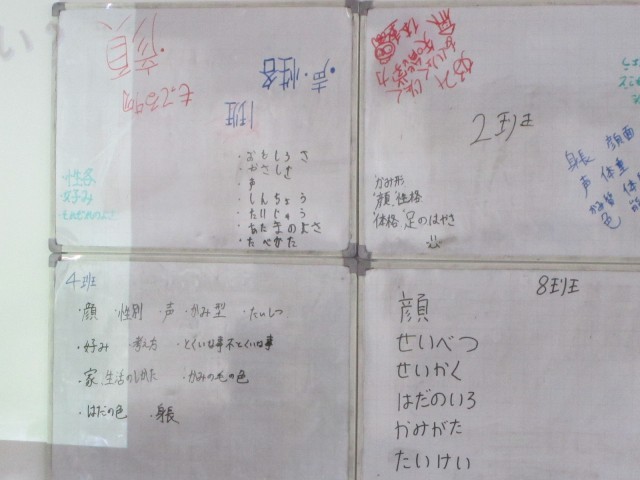 顔
もってる物
声・性格
1班
・おもしろさ
・やさしさ
・声
・しんちょう
・たいじゅう
・あたまのよさ
・たべかた
性格
好み
好み
2班
かみ形
顔 性格
体格 足のはやさ
身長 顔面
声 体重
色
4班
・顔 ・性別 ・声 ・かみ型 ・たいしつ
・好み ・考え方 ・とくいな事不とくいな事
・家 生活のしかた ・かみの毛の色
・はだの色 ・身長
8班
顔
せいべつ
せいかく
はだのいろ
かみがた
たいけい